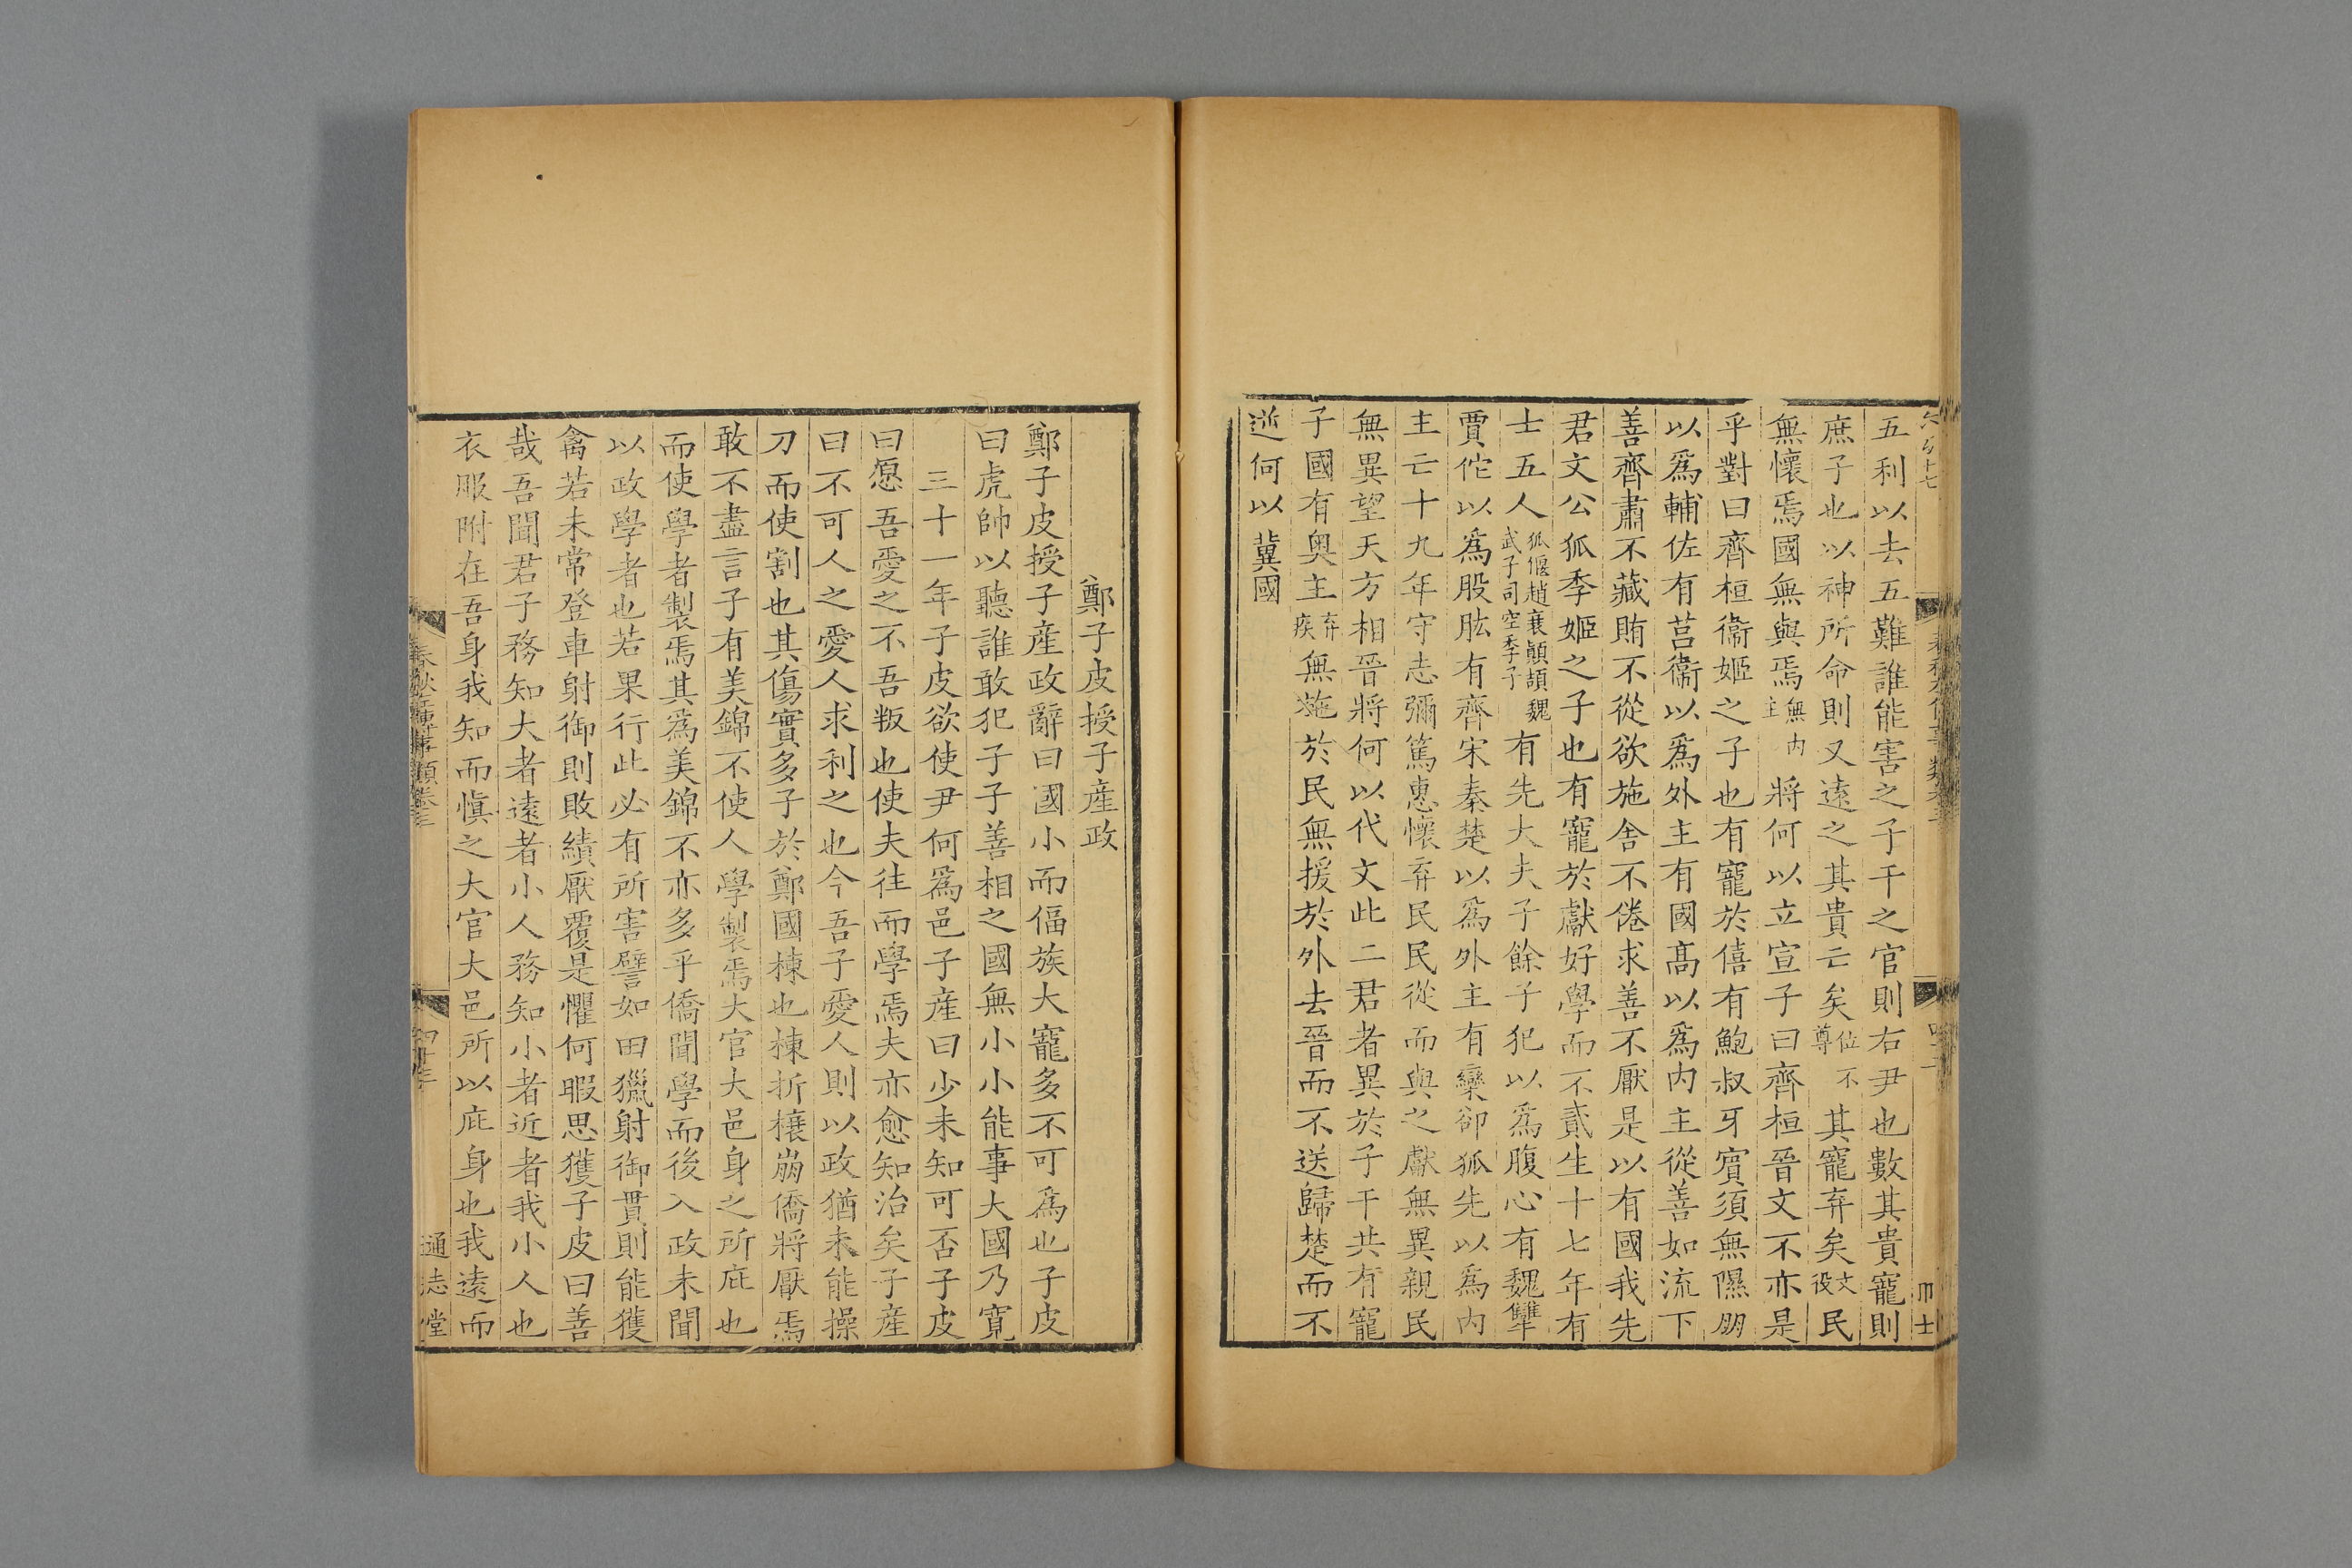 五利以去五難誰能害之子干之官則右尹也數其貴寵則
庶子也以神所命則又遠之其貴亡矣位不尊其寵弃矣文役民
無懷焉國無與焉無內主將何以立宣子曰齊桓晉文不亦是
乎對曰齊桓衞姬之子也有寵於僖有鮑叔牙賓須無隰朋
以爲輔佐有莒衞以爲外主有國髙以爲內主從善如流下
善齊肅不藏賄不從欲施舍不倦求善不厭是以有國我先
君文公狐季姬之子也有寵於獻好學而不貳生十七年有
士五人狐偃趙衰顚頡魏武子司空季子有先大夫子餘子犯以爲腹心有魏犨
賈佗以爲股肱有齊宋秦楚以爲外主有欒郤狐先以爲內
主亡十九年守志彌篤惠懷弃民民從而與之獻無異親民
無異望天方相晉將何以代文此二君者異於子干共有寵
子國有奥主弃疾無施於民無援於外去晉而不送歸楚而不
逆何以冀國
鄭子皮授子産政
鄭子皮授子産政辭曰國小而偪族大寵多不可爲也子皮
曰虎帥以聽誰敢犯子子善相之國無小小能事大國乃寬
三十一年子皮欲使尹何爲邑子産曰少未知可否子皮
曰愿吾愛之不吾叛也使夫往而學焉夫亦愈知治矣子産
曰不可人之愛人求利之也今吾子愛人則以政猶未能操
刀而使割也其傷實多子於鄭國棟也棟折榱崩僑將厭焉
敢不盡言子有美錦不使人學製焉大官大邑身之所庇也
而使學者製焉其爲美錦不亦多乎僑聞學而後入政未聞
以政學者也若果行此必有所害譬如田獵射御貫則能獲
禽若未常登車射御則敗績厭覆是懼何暇思獲子皮曰善
哉吾聞君子務知大者遠者小人務知小者近者我小人也
衣服附在吾身我知而愼之大官大邑所以庇身也我遠而
通志堂